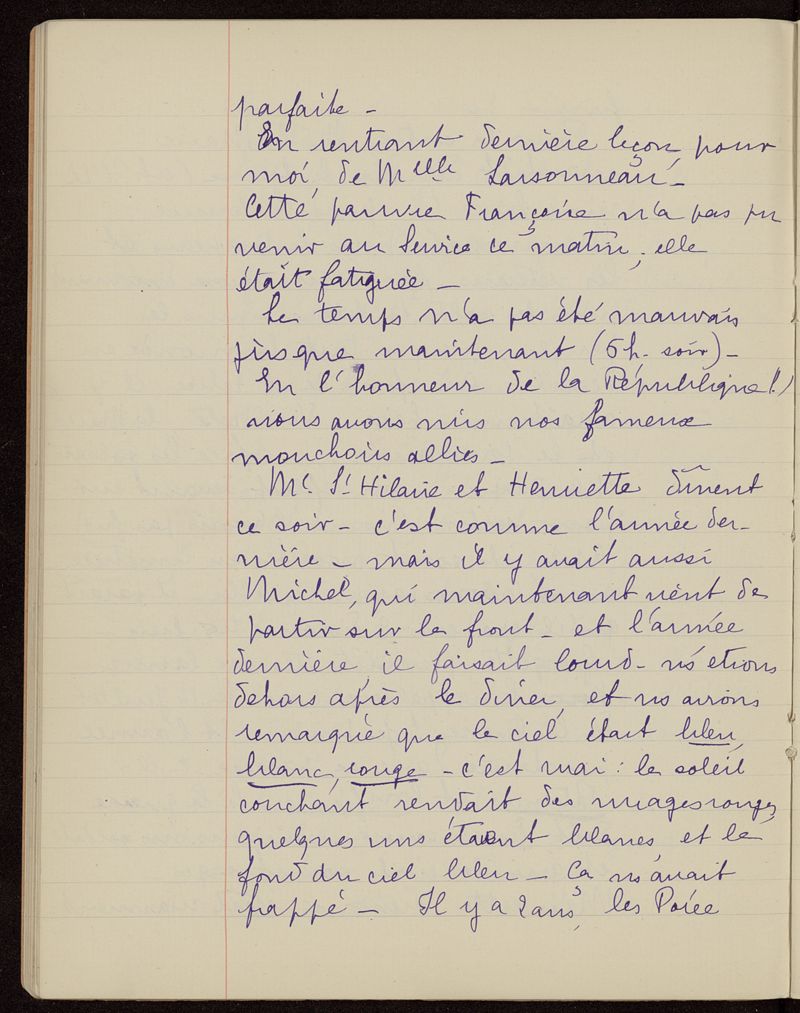 parfaite -
En rentrant dernière leçon, pour
moi, de Melle Larsonneau -
Cette pauvre Françoise n'a pas pu
venir au Service ce matin ; elle
était fatiguée -
Le temps n'a pas été mauvais
jusque maintenant (6 h. soir) -
En l'honneur de la République !!
nous avons mis nos fameux
mouchoirs alliés -
Mr. St Hilaire et Henriette dînent
ce soir - c'est comme l'année der-
nière - mais il y avait aussi
Michel, qui maintenant vient de
partir sur le front - et l'année
dernière, il faisait lourd - ns étions
dehors après le dîner, et ns avions
remarqué que le ciel était bleu,
blanc, rouge - c'est vrai : le soleil
couchant rendait des nuages rouges,
quelques uns étaient blancs, et le
fond du ciel bleu - Ça ns avait
frappé - Il y a 2 ans, les Porée